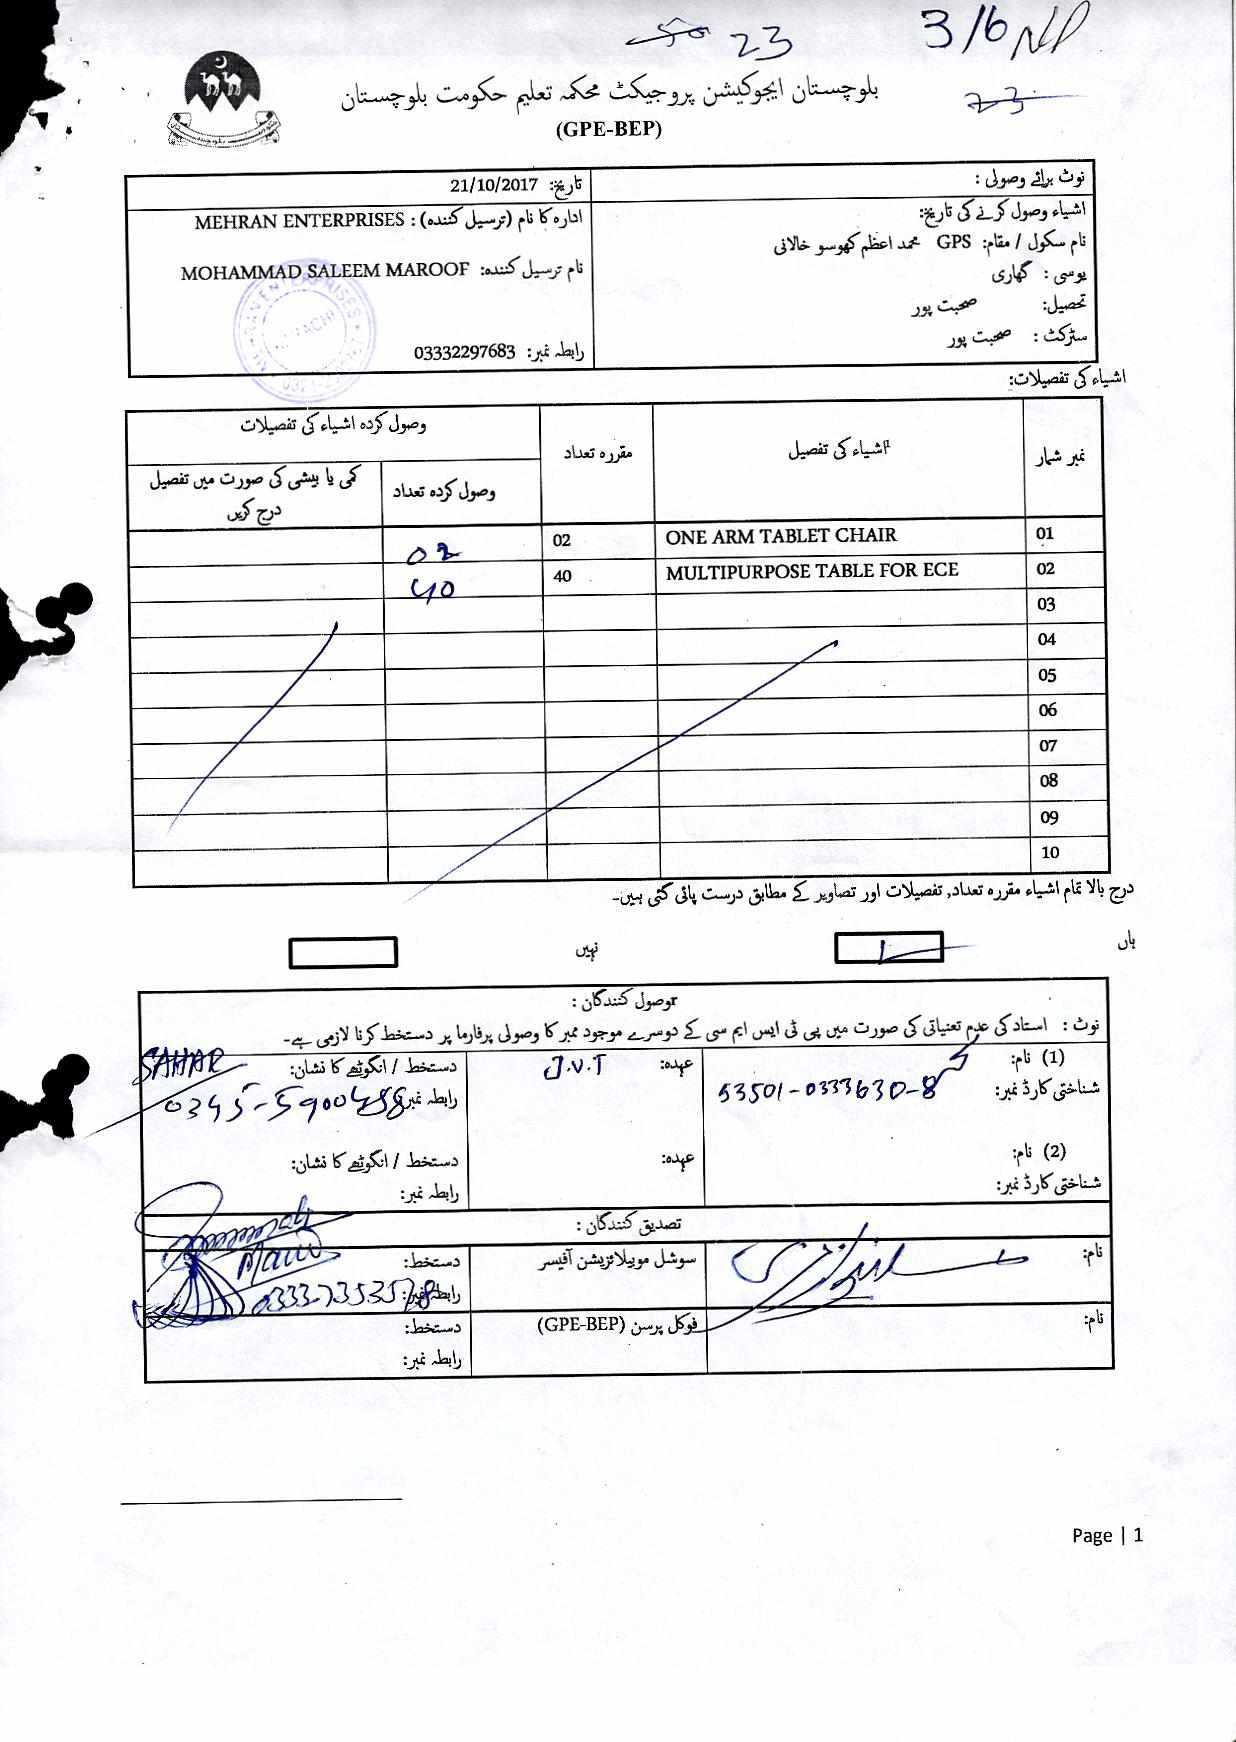 23
3/6
بلوچستان ایجوکیشن پروجیکٹ محکمہ تعلیم حکومت بلوچستان
23
(GPE-BEP)
نوٹ برائے وصولی :
تاریخ: 21/10/2017
اشیاء وصول کرنے کی تاریخ:
ادارہ کا نام (ترسیل کنندہ) : MEHRAN ENTERPRISES
نام سکول / مقام: GPS محمد اعظم کھوسو خالائی
نام ترسیل کنندہ: MOHAMMAD SALEEM MAROOF
یوسی : گھاری
تحصیل: صحبت پور
سٹرکٹ : صحبت پور
رابطہ نمبر: 03332297683
اشیاء کی تفصیلات:
نمبر شمار
اشیاء کی تفصیل
مقررہ تعداد
وصول کردہ اشیاء کی تفصیلات
وصول کردہ تعداد
کمی یا بیشی کی صورت میں تفصیل درج کریں
01 ONE ARM TABLET CHAIR 02 02
02 MULTIPURPOSE TABLE FOR ECE 40 40
03
04
05
06
07
08
09
10
درج بالا تمام اشیاء مقررہ تعداد, تفصیلات اور تصاویر کے مطابق درست پائی گئی ہیں۔
ہاں
نہیں
وصول کنندگان :
نوٹ : استاد کی عدم تعنیاتی کی صورت میں پی ٹی ایس ایم سی کے دوسرے موجود ممبر کا وصولی پرفارما پر دستخط کرنا لازمی ہے۔
(1) نام:
عہدہ: J.V.T
دستخط / انگوٹھے کا نشان: SAHAR
شناختی کارڈ نمبر: 53501-0333630-8
رابطہ نمبر: 0345-5900488
(2) نام:
عہدہ:
دستخط / انگوٹھے کا نشان:
شناختی کارڈ نمبر:
رابطہ نمبر:
تصدیق کنندگان :
نام:
سوشل موبیلائزیشن آفیسر
دستخط:
رابطہ نمبر: 0333-7353578
نام:
فوکل پرسن (GPE-BEP)
دستخط:
رابطہ نمبر:
Page | 1